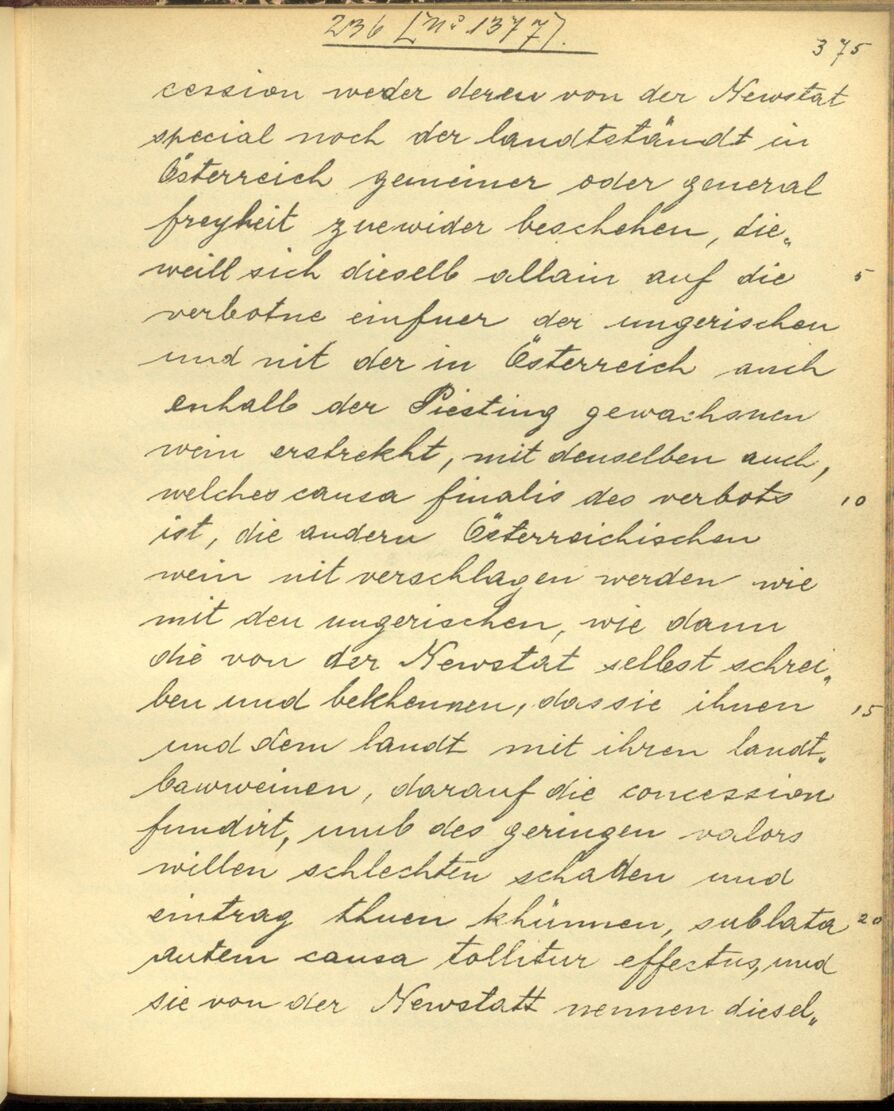 236 [No 1377].
375
cession weder deren von der Newstat
special noch der landtständt in
Österreich gemeiner oder general
freyheit zuewider beschehen, die„
weill sich dieselb allain auf die 5
verbotne einfuer der ungerischen
und nit der in Österreich auch
enhalb der Piesting gewachsnen
wein erstrekht, mit denselben auch,
welches causa finalis des verbots 10
ist, die andern Österreichischen
wein nit verschlagen werden wie
mit den ungerischen, wie dann
die von der Newstat selbst schrei„
ben und bekhennen, das sie ihnen 15
und dem landt mit ihren landt„
bawweinen, darauf die concession
fundirt, umb des geringen valors
willen schlechten schaden und
eintrag thuen khünnen, sublata 20
autem causa tollitur effectus, und
sie von der Newstatt nennen diesel„